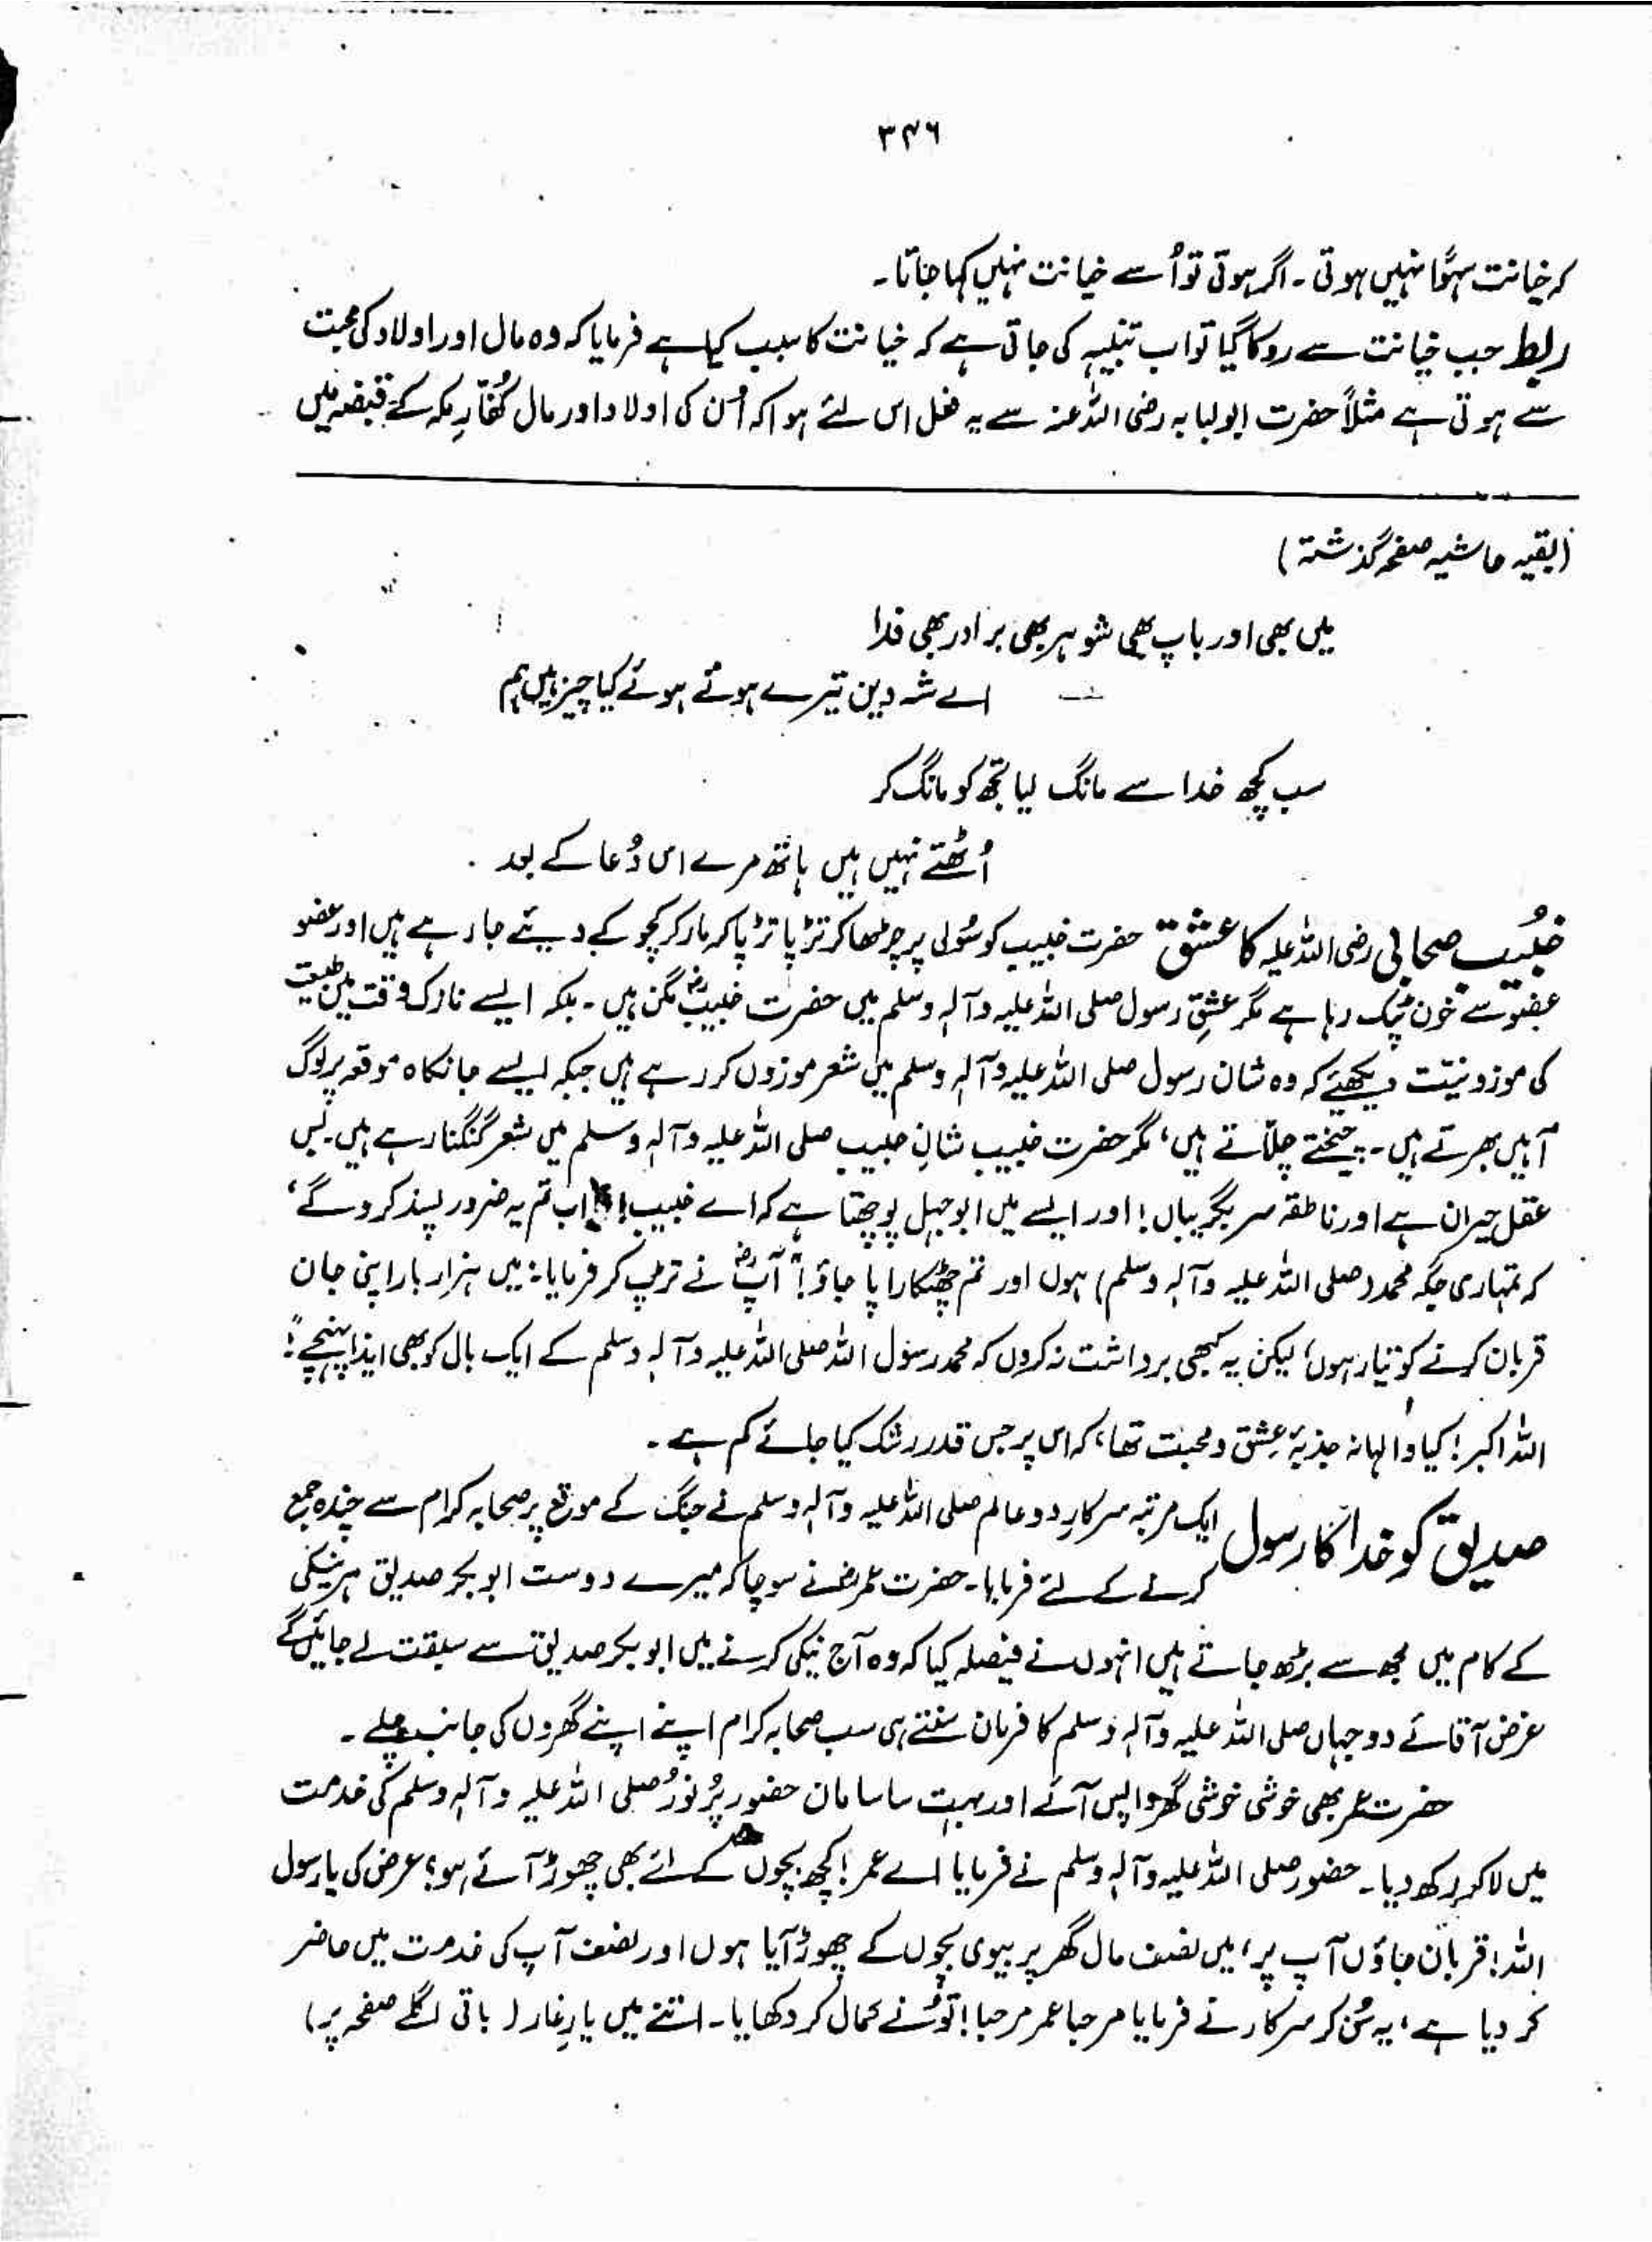 ۳۴۶
کہ خیانت سہوًا نہیں ہوتی ۔ اگر ہوتی تو اُسے خیانت نہیں کہا جاتا ۔
ربط جب خیانت سے روکا گیا تو اب تنبیہہ کی جاتی ہے کہ خیانت کا سبب کیا ہے فرمایا کہ وہ مال اور اولاد کی محبت
سے ہوتی ہے مثلاً حضرت ابولبابہ رضی اللہ عنہ سے یہ فعل اس لئے ہوا کہ اُن کی اولاد اور مال کُفّارِ مکہ کے قبضہ میں
(بقیہ حاشیہ صفحہ گذشتہ)
میں بھی اور باپ بھی شوہر بھی برادر بھی فدا
اے شہ دین تیرے ہوتے ہوئے کیا چیز ہیں ہم
سب کچھ خدا سے مانگ لیا تجھ کو مانگ کر
اُٹھتے نہیں ہیں ہاتھ مرے اس دُعا کے بعد
خبُیب صحابی رضی اللہ علیہ کا عشق حضرت خبیب کو سُولی پر چڑھا کر تڑپا تڑپا کر مار کر کچو کے دیئے جا رہے ہیں اور عضو
عضو سے خون ٹپک رہا ہے مگر عشقِ رسول صلی اللہ علیہ وآلہٖ وسلم میں حضرت خبیبؓ مگن ہیں ۔ بلکہ ایسے نازک وقت میں طبیعت
کی موزونیّت دیکھئے کہ وہ شان رسول صلی اللہ علیہ وآلہٖ وسلم میں شعر موزوں کر رہے ہیں جبکہ ایسے جانکاہ موقعہ پر لوگ
آہیں بھرتے ہیں ۔ چیختے چلّاتے ہیں، مگر حضرت خبیب شانِ حبیب صلی اللہ علیہ وآلہٖ وسلم میں شعر گنگنا رہے ہیں ۔ بس
عقل حیران ہے اور ناطقہ سر بگریباں! اور ایسے میں ابوجہل پوچھتا ہے کہ اے خبیب! اب تم یہ ضرور پسند کرو گے،
کہ تمہاری جگہ محمد (صلی اللہ علیہ وآلہٖ وسلم) ہوں اور تم چھٹکارا پا جاؤ! آپؓ نے تڑپ کر فرمایا: میں ہزار بار اپنی جان
قربان کرنے کو تیار ہوں، لیکن یہ کبھی برداشت نہ کروں کہ محمد رسول اللہ صلی اللہ علیہ وآلہٖ وسلم کے ایک بال کو بھی ایذا پہنچے"!
اللہ اکبر! کیا والہانہ جذبۂ عِشق و محبت تھا، کہ اس پر جس قدر رشک کیا جائے کم ہے ۔
صدیق کو خدا کا رسول ایک مرتبہ سرکارِ دو عالم صلی اللہ علیہ وآلہٖ وسلم نے جنگ کے موقع پر صحابہ کرام سے چندہ جمع
کرنے کے لئے فرمایا ۔ حضرت عمرؓ نے سوچا کہ میرے دوست ابوبکر صدیق ہر نیکی
کے کام میں مجھ سے بڑھ جاتے ہیں انہوں نے فیصلہ کیا کہ وہ آج نیکی کرنے میں ابوبکر صدیق سے سبقت لے جائیں گے
غرض آقائے دو جہاں صلی اللہ علیہ وآلہٖ وسلم کا فرمان سنتے ہی سب صحابہ کرام اپنے اپنے گھروں کی جانب چلے ۔
حضرت عمر بھی خوشی خوشی گھر واپس آئے اور بہت سا سامان حضور پُر نور صلی اللہ علیہ وآلہٖ وسلم کی خدمت
میں لا کر رکھ دیا ۔ حضور صلی اللہ علیہ وآلہٖ وسلم نے فرمایا اے عمر! کچھ بچوں کے لئے بھی چھوڑ آئے ہو؟ عرض کی یا رسول
اللہ! قربان جاؤں آپ پر، میں نصف مال گھر پر بیوی بچوں کے چھوڑ آیا ہوں اور نصف آپ کی خدمت میں حاضر
کر دیا ہے، یہ سُن کر سرکار نے فرمایا مرحبا عمر مرحبا! تُو نے کمال کر دکھایا ۔ اتنے میں یارِ غار (باقی اگلے صفحہ پر)